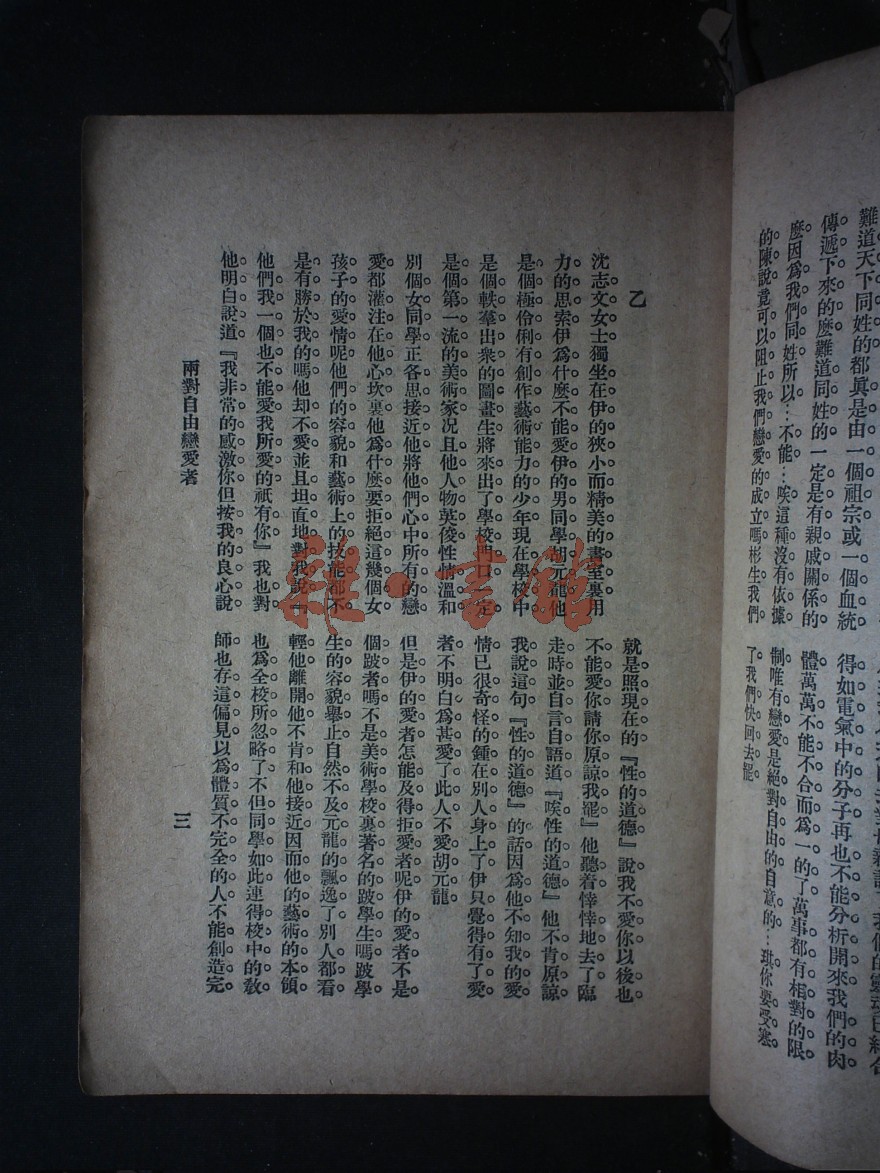 難道天下同姓的都眞是由一個祖宗或一個血統
傳遞下來的麽難道同姓的一定是有親戚關係的
麽因爲我們同姓所以…不能…唉這種沒有依據
的陳說竟可以阻止我們戀愛的成立嗎彬生我們
得如電氣中的分子再也不能分析開來我們的肉
體萬萬不能不合而爲一的了萬事都有相對的限
制唯有戀愛是絕對自由的自意的…琪你要受寒
了我們快回去罷
乙
沈志文女士獨坐在伊的狹小而精美的畫室裏用
力的思索伊爲什麽不能愛伊的男同學胡元龍他
是個極伶俐有創作藝術能力的少年現在學校中
是個軼羣出衆的圖畫生將來出了學校門口一定
是個第一流的美術家况且他人物英俊性情溫和
別個女同學正各思接近他將他們心中所有的戀
愛都灌注在他心坎裏他爲什麽要拒絕這幾個女
孩子的愛情呢他們的容貌和藝術上的技能都不
是有勝於我的嗎他却不愛並且坦直地對我說『
他們我一個也不能愛我所愛的祇有你』我也對
他明白說道『我非常的感激你但按我的良心說
就是照現在的『性的道德』說我不愛你以後也
不能愛你請你原諒我罷』他聽着悻悻地去了臨
走時並自言自語道『唉性的道德』他不肯原諒
我說這句『性的道德』的話因爲他不知我的愛
情已很奇怪的鍾在別人身上了伊只覺得有了愛
者不明白爲甚愛了此人不愛胡元龍
但是伊的愛者怎能及得拒愛者呢伊的愛者不是
個跛者嗎不是美術學校裏著名的跛學生嗎跛學
生的容貌舉止自然不及元龍的飄逸了別人都看
輕他離開他不肯和他接近因而他的藝術的本領
也爲全校所忽略了不但同學如此連得校中的敎
師也存這偏見以爲體質不完全的人不能創造完
兩對自由戀愛者
三
雜·書館